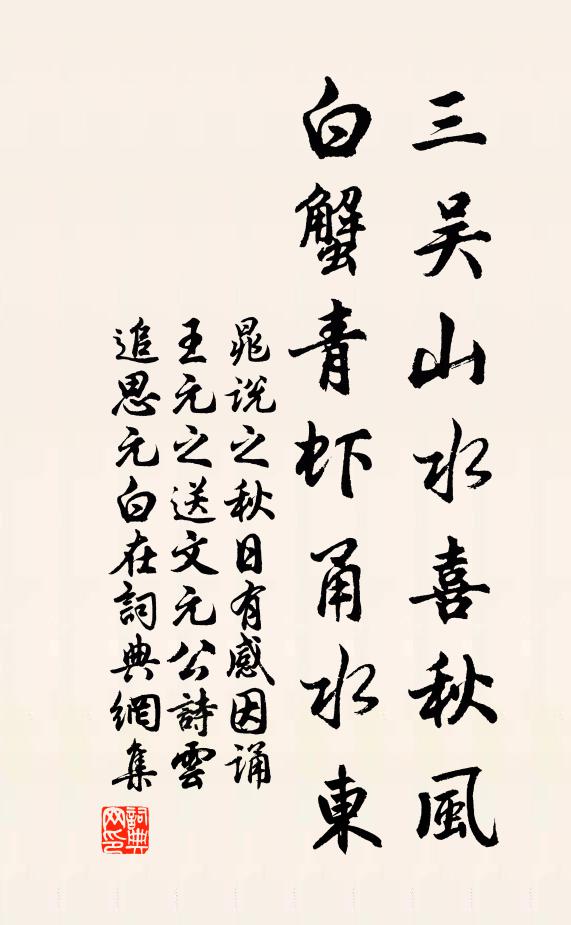 三吴山水喜秋風
白蟹青虾甬水東
晁説之秋日有感因誦
王元之送文元公詩雲
追思元白在詞典網集
詞典網印